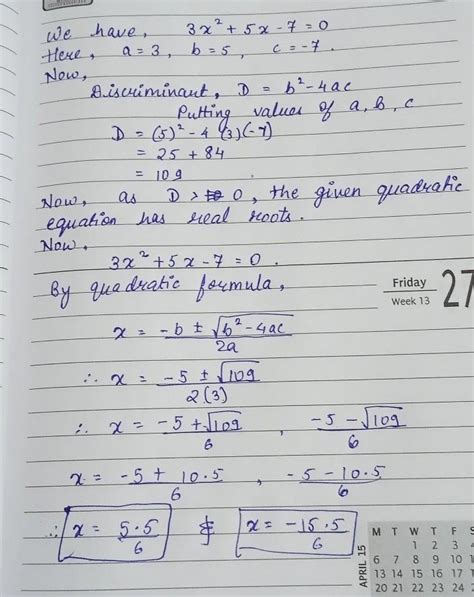 We have, 3x² + 5x - 7 = 0
Here, a = 3, b = 5, c = -7.
Now,
Discriminant, D = b² - 4ac
Putting values of a, b, c
D = (5)² - 4 (3)(-7)
= 25 + 84
= 109
Now, as D > 0, the given quadratic
equation has real roots.
Now,
3x² + 5x - 7 = 0.
By quadratic formula,
Friday 27
Week 13
x = -b ± √b² - 4ac / 2a
∴ x = -5 ± √109 / 2(3)
∴ x = -5 + √109 / 6 , -5 - √109 / 6
x = -5 + 10.5 / 6 , -5 - 10.5 / 6
∴ x = 5.5 / 6 & x = -15.5 / 6
APRIL 15
M T W T F S
1 2 3
6 7 8 9 10
13 14 15 16 17
20 21 22 23 24